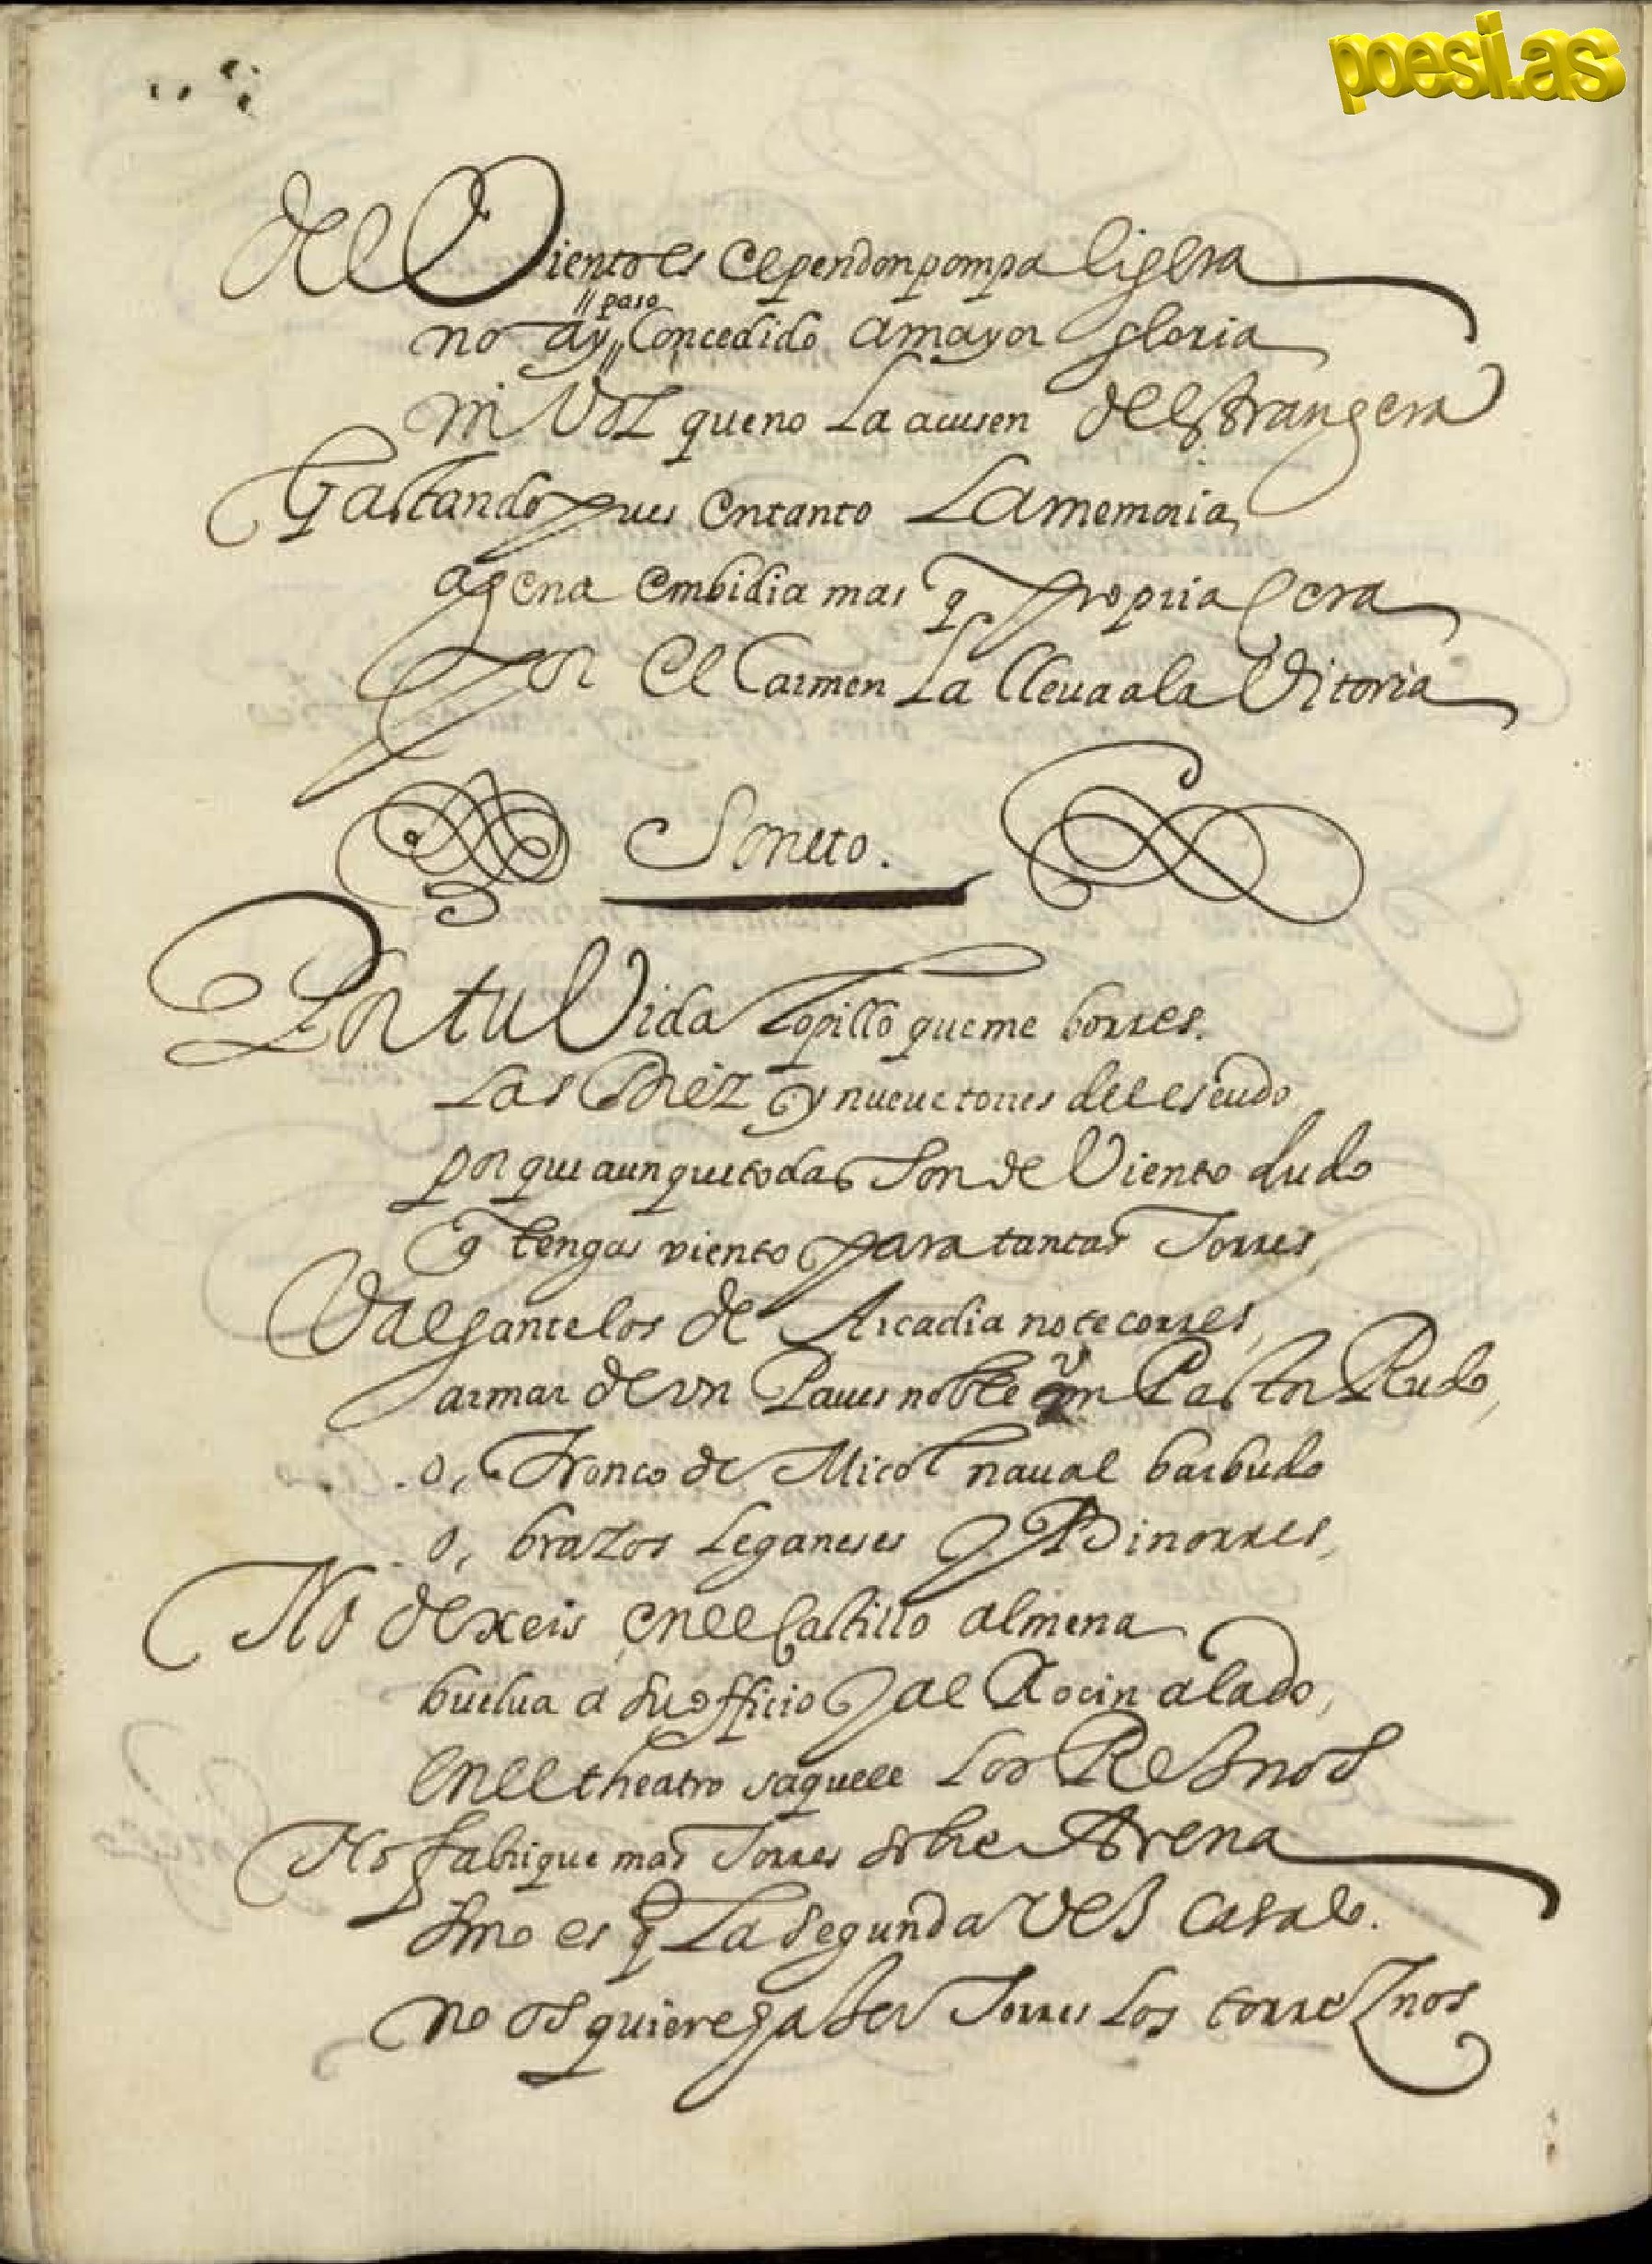 poesi.as
del Viento es el pendon pompa ligera
no ay paso concedido a mayor gloria
ni Voz que no la acusen de estrangera
Gastando pues en tanto La memoria
agena embidia mas q propria cera
Por el Carmen La lleua a la Vitoria
Soneto.
Por tu Vida Lopillo que me borres.
Las Diez y nueue torres del escudo
por que aun que todas son de Viento dudo
q tengas viento para tantas Torres,
Valgante los de Arcadia no te corres,
armar de vn Paues noble vn Pastor Rudo,
o, tronco de Micol naual barbudo
o, brazos Leganeses y Binorres,
No dexeis en el Castillo almena
buelua a su officio y al Rocin alado,
en el theatro saquele los Resnos
No fabrique mas Torres sobre Arena
sino es q La segunda Ves casado.
no os quiere haser Torres Los torreznos